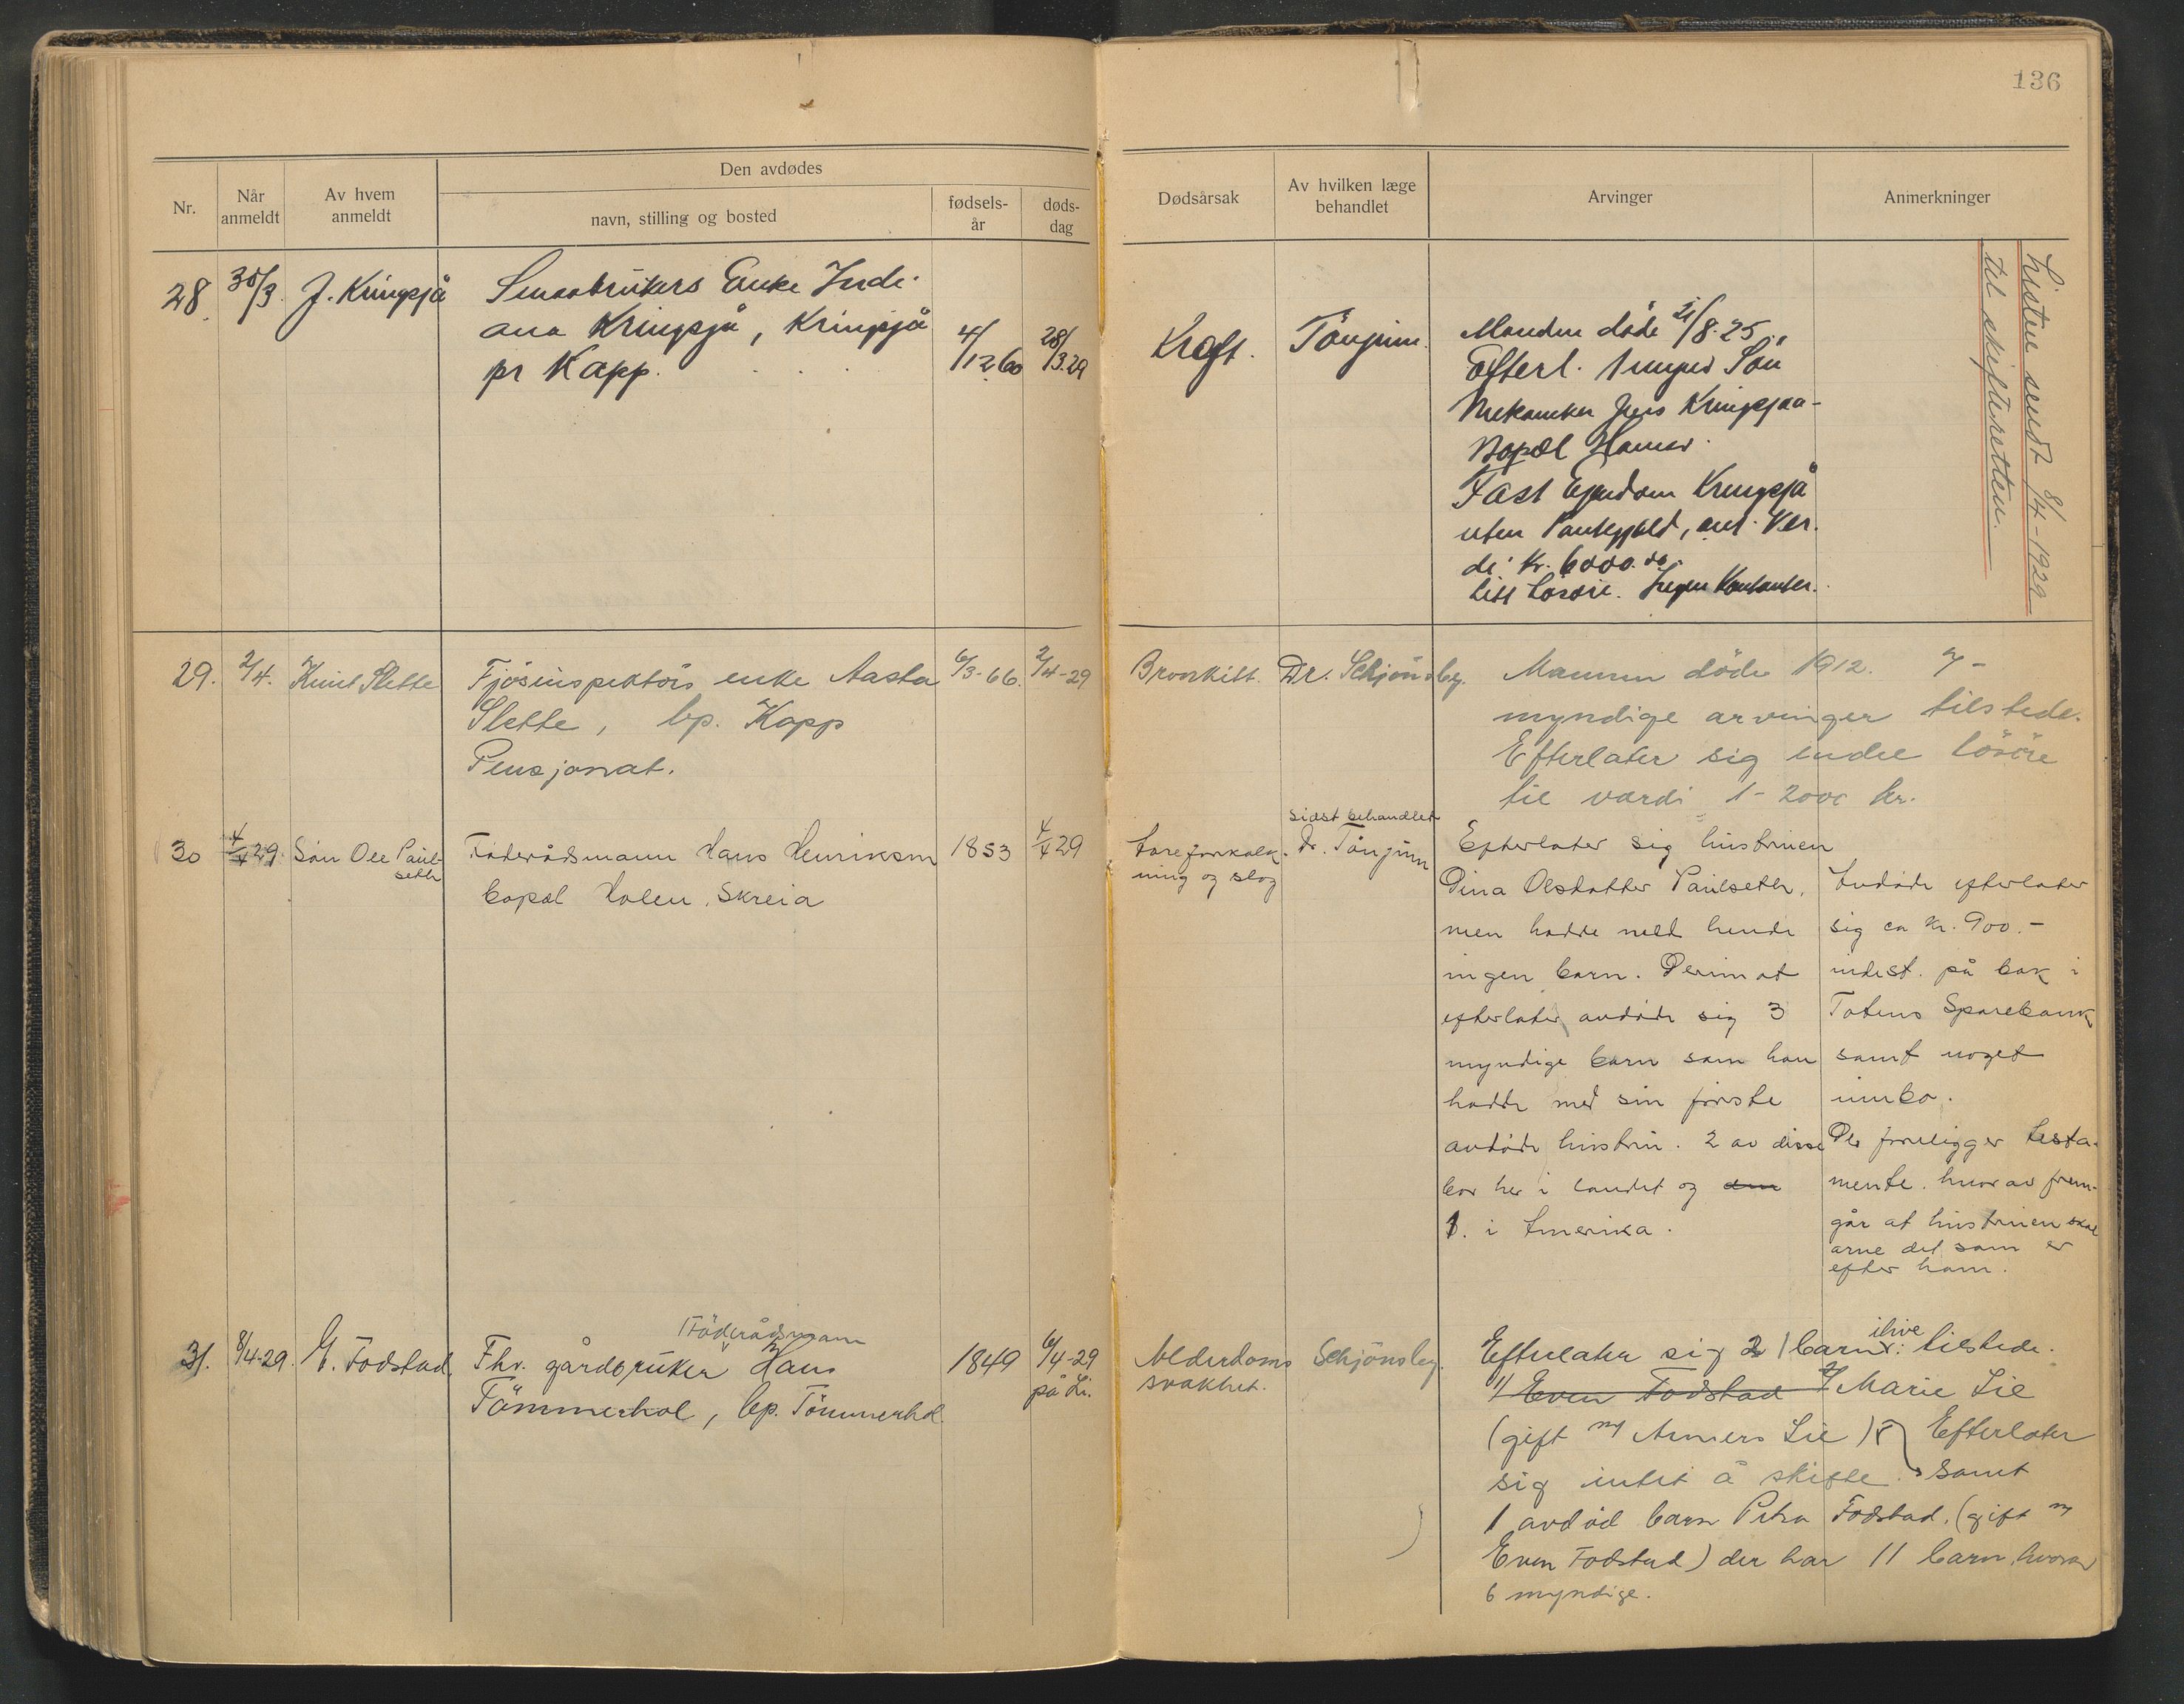 136
Den avdødes
Nr.
Når anmeldt
Av hvem anmeldt
navn, stilling og bosted
fødsels-år
døds-dag
Dødsårsak
Av hvilken læge behandlet
Arvinger
Anmerkninger
28. 30/3. J. Kringsjå
Smaabrukers Enke Indi-
ana Kringsjå, Kringsjå
pr Kapp.
4/12 60
28/3.29
Kræft.
Tönjum.
Manden døde 21/8.25.
Efterl. 1 myndig Sön
Mekaniker Jens Kringsjaa-
Bopæl Hamar.
Fast Ejendom Kringsjå
uten Pantegjæld, ant. Ver-
di Kr. 6000.00.
Litt Lösöre. Ingen Kontanter.
Listen sendt 8/4-1929
til skifteretten.
29. 2/4. Knut Slette
Fjösinspektörs enke Aasta
Slette, bp. Kapp
Pensjonat.
6/3-66.
2/4-29
Bronkitt.
Dr. Schjönsby.
Mannen döde 1912. 7-
myndige arvinger tilstede.
Efterlater sig endel lösöre
til værdi 1-2000 kr.
30 4/4 29. Sön Ole Paul-
seth
Föderådsmann Hans Henriksen
bopæl Holen, Skreia
1853
4/4 29
Åreforkalk-
ning og slag
sidst behandlet
Dr. Tönjum
Efterlater sig hustruen
Dina Olsdatter Paulseth,
men hadde med hende
ingen barn. Derimot
efterlater avdöde sig 3
myndige barn som han
hadde med sin förste
avdöde hustru. 2 av disse
bor her i landet og
1. i Amerika.
Avdöde efterlater
sig ca kr. 900.-
indest. på bok i
Totens Sparebank
samt noget
innbo.
Der foreligger testa-
mente. hvorav frem-
går at hustruen skal
arve det som er
efter ham.
31. 8/4-29. E. Fodstad.
Föderådsmann
Fhv. gårdbruker Hans
Tömmerhol, bp. Tömmerhol
1849
6/4-29
på Li.
Alderdoms
svakhet.
Schjönsby.
Efterlater sig 1 barn ilive: tilstede.
1/ Even Fodstad 2/ Marie Lie
(gift m/ Anners Lie) Efterlater
sig intet å skifte. samt
1 avdöd barn Petra Fodstad, (gift m/
Even Fodstad) der har 11 barn, hvorav
6 myndige.